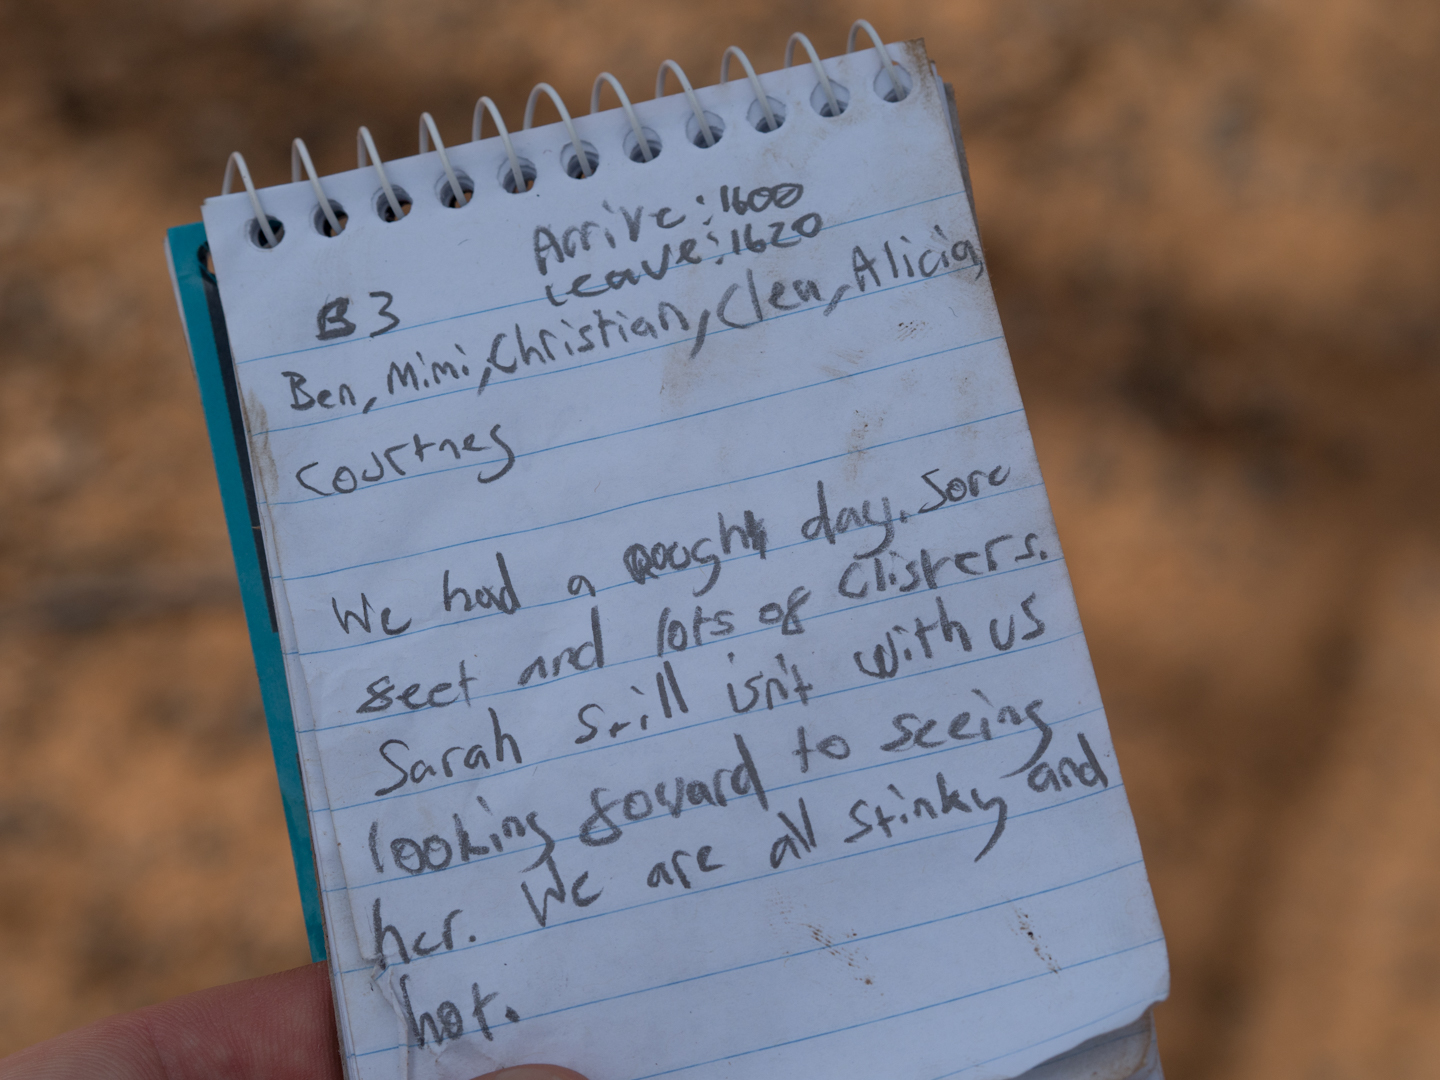 Arrive: 1600
Leave: 1620
B3
Ben, Mimi, Christian, Clea, Alicia,
Courtney
We had a rough day. Sore
feet and lots of blisters.
Sarah still isn't with us
looking foward to seeing
her. We are all stinky and
hot.